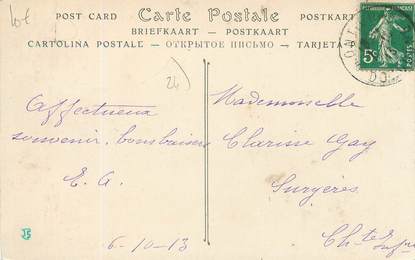 POST CARD Carte Postale POSTKART
BRIEFKAART — POSTKAART
CARTOLINA POSTALE — ОТКРЫТОЕ ПИСЬМО — TARJETA
5c
POSTES
24
Affectueux
souvenir, bons baisers
E. A.
6-10-13
Mademoiselle
Clarisse Gay
Surgères
Chte Infre